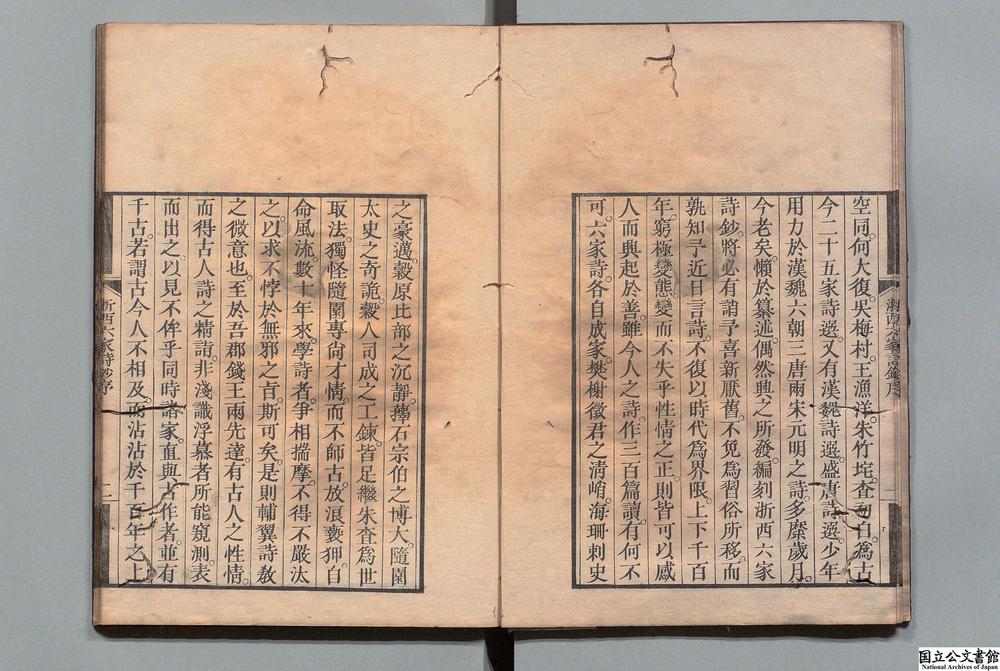 空同。何大復。吳梅村。王漁洋。朱竹垞。查初白。爲古
今二十五家詩選。又有漢魏詩選。盛唐詩選。少年
用力於漢魏六朝三唐兩宋元明之詩。多糜歲月。
今老矣。懶於纂述。偶然興之所發。編刻浙西六家
詩鈔。將必有誚予喜新厭舊。不免爲習俗所移。而
孰知予近日言詩。不復以時代爲界限。上下千百
年。窮極變態。變而不失乎性情之正。則皆可以感
人而興起於善。雖今人之詩。作三百篇讀。有何不
可。六家詩。各自成家。樊榭徵君之清峭。海珊刺史
之豪邁。穀原比部之沉靜。蘀石宗伯之博大。隨園
太史之奇詭。穀人司成之工鍊。皆足繼朱查爲世
取法。獨怪隨園專尙才情。而不師古。放浪褻狎。自
命風流。數十年來。學詩者。爭相揣摩。不得不嚴汰
之。以求不悖於無邪之旨。斯可矣。是則輔翼詩敎
之微意也。至於吾郡錢王兩先達。有古人之性情。
而得古人詩之精詣。非淺識浮慕者所能窺測。表
而出之。以見不侔乎同時諸家。直與古作者。並有
千古。若謂古今人不相及。而沾沾於千百年之上
浙西六家詩鈔序
浙西六家詩鈔序
二
国立公文書館
National Archives of Japan